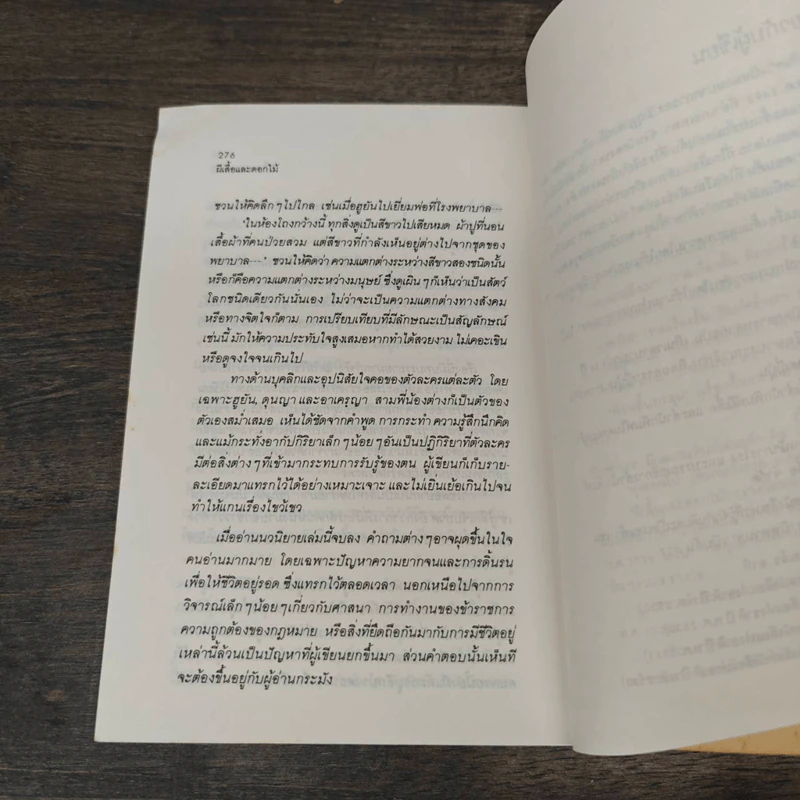 276
ผีเสื้อและดอกไม้
ชวนให้คิดลึก ๆ ไปไกล เช่นเมื่อฮูยันไปเยี่ยมพ่อที่โรงพยาบาล---
'ในห้องโถงกว้างนี้ ทุกสิ่งดูเป็นสีขาวไปเสียหมด ผ้าปูที่นอน
เสื้อผ้าที่คนป่วยสวม แต่สีขาวที่กำลังเห็นอยู่ต่างไปจากชุดของ
พยาบาล---' ชวนให้คิดว่า ความแตกต่างระหว่างสีขาวสองชนิดนั้น
หรือก็คือความแตกต่างระหว่างมนุษย์ ซึ่งดูเผิน ๆ ก็เห็นว่าเป็นสัตว์
โลกชนิดเดียวกันนั่นเอง ไม่ว่าจะเป็นความแตกต่างทางสังคม
หรือทางจิตใจก็ตาม การเปรียบเทียบที่มีลักษณะเป็นสัญลักษณ์
เช่นนี้ มักให้ความประทับใจสูงเสมอหากทำได้สวยงาม ไม่เคอะเขิน
หรือดูจงใจจนเกินไป
ทางด้านบุคลิกและอุปนิสัยใจคอของตัวละครแต่ละตัว โดย
เฉพาะฮูยัน, ดุนญา และอาเครฺญา สามพี่น้องต่างก็เป็นตัวของ
ตัวเองสม่ำเสมอ เห็นได้ชัดจากคำพูด การกระทำ ความรู้สึกนึกคิด
และแม้กระทั่งอากัปกิริยาเล็ก ๆ น้อย ๆ อันเป็นปฏิกิริยาที่ตัวละคร
มีต่อสิ่งต่าง ๆ ที่เข้ามากระทบการรับรู้ของตน ผู้เขียนก็เก็บราย-
ละเอียดมาแทรกไว้ได้อย่างเหมาะเจาะ และไม่เยิ่นเย้อเกินไปจน
ทำให้แกนเรื่องไขว้เขว
เมื่ออ่านนวนิยายเล่มนี้จบลง คำถามต่าง ๆ อาจผุดขึ้นในใจ
คนอ่านมากมาย โดยเฉพาะปัญหาความยากจนและการดิ้นรน
เพื่อให้ชีวิตอยู่รอด ซึ่งแทรกไว้ตลอดเวลา นอกเหนือไปจากการ
วิจารณ์เล็ก ๆ น้อย ๆ เกี่ยวกับศาสนา การทำงานของข้าราชการ
ความถูกต้องของกฎหมาย หรือสิ่งที่ยึดถือกันมากับการมีชีวิตอยู่
เหล่านี้ล้วนเป็นปัญหาที่ผู้เขียนยกขึ้นมา ส่วนคำตอบนั้นเห็นที
จะต้องขึ้นอยู่กับผู้อ่านกระมัง